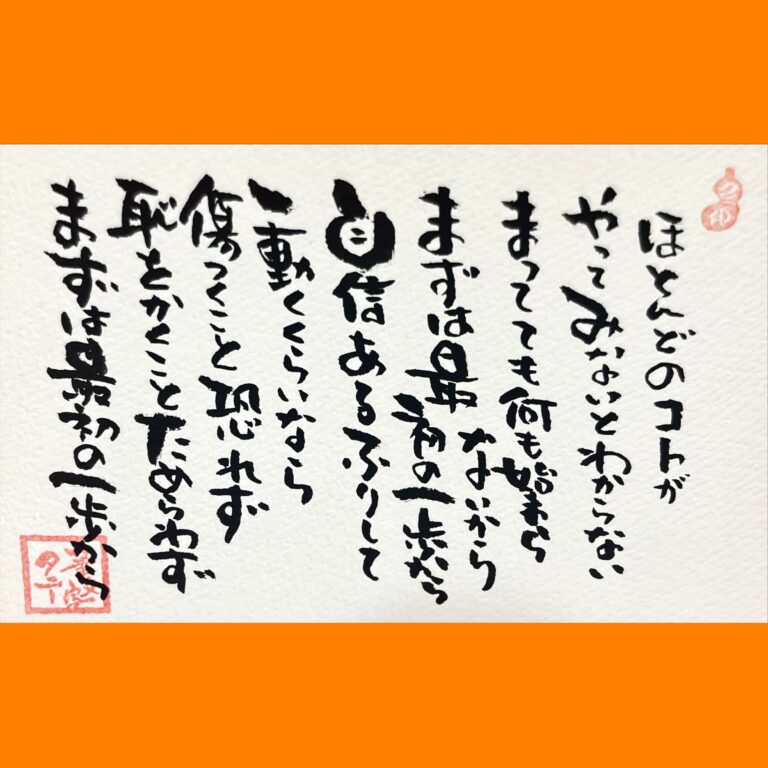 ほとんどのコトが
やってみないとわからない
まってても何も始まら
ないから
まずは最初の一歩から
自信あるふりして
一動くくらいなら
傷つくこと恐れず
恥をかくことためらわず
まずは最初の一歩から